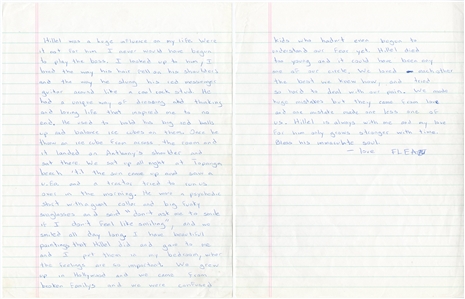 Hillel was a huge influence on my life. Were
it not for him I never would have begun
to play the bass. I looked up to him, I
loved the way his hair fell on his shoulders
and the way he slung his red messenger
guitar around like a cool cat stud. He
had a unique way of dressing and thinking
and being life that inspired me to no
end. He used to hold his big red balls
up and balance ice cubes on them. Once he
threw an ice cube from across the room and
it landed on Anthony's shoulder and
sat there. We sat up all night at Topanga
beach 'til the sun came up and own a
kite and a tractor tried to run us
over in the morning. He wore a psychedelic
shirt with a giant collar and big funky
sunglasses and said "don't ask me to smile
if I don't feel like smiling", and we
smiled all day long. I have beautiful
paintings that Hillel did and gave to me
and I put them in my bedroom, where
the feelings are so important. We grew
up in Hollywood and we came from
broken family's and we were confused
kids who hadn't even begun to
understand our fame yet. Hillel died
too young and it could have been any
one of our circle. We loved each other
the best we knew how, and tried
so hard to deal with our pain. We made
huge mistakes but they came from love
and one mistake made one less one of
us. Hillel is always with me and my love
for him only grows stronger with time.
Bless his immovable soul.
- love FLEA